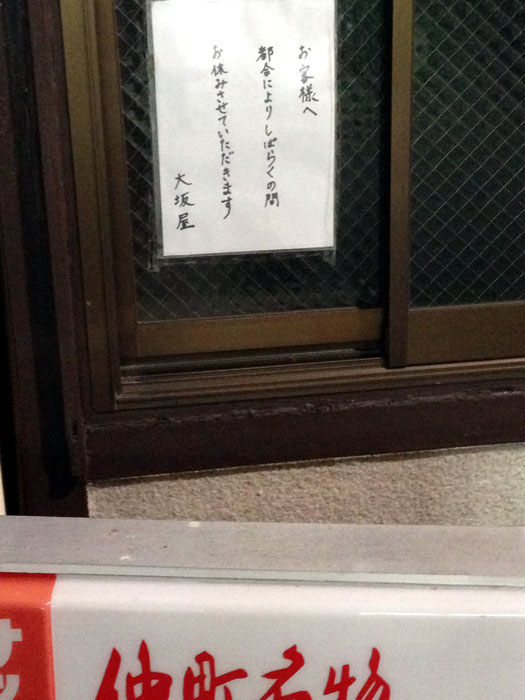 お客様へ
都合によりしばらくの間
お休みさせていただきます
大坂屋
サッ
仲町名物